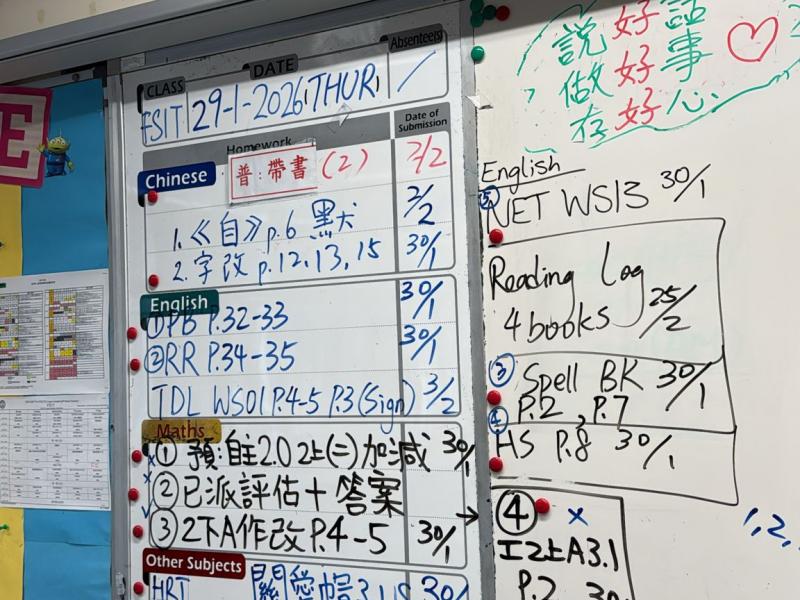 CLASS
DATE
Absentee(s)
29-1-2026 THUR
Homework
Date of Submission
Chinese
普：帶書 (2) 2/2
1. 《自》p.6 黑犬 2/2
2. 字改 p.12, 13, 15 30/1
English
① PB P.32-33 30/1
② RR P.34-35 30/1
TDL WS01 P.4-5 P.3 (Sign) 3/2
Maths
① 預：自主2.0 2上(二)加減 30/1
② 已派評估+答案
③ 2下A作改 P.4-5 30/1
Other Subjects
HRT
30/
說好話
做好事
存好心
English
NET WS13 30/1
Reading Log
4 books 25/2
③ Spell BK 30/1
P.2, P.7
④ HS P.8 30/1
④ x
工2上A3.1
P.2 30
1, 2,
E